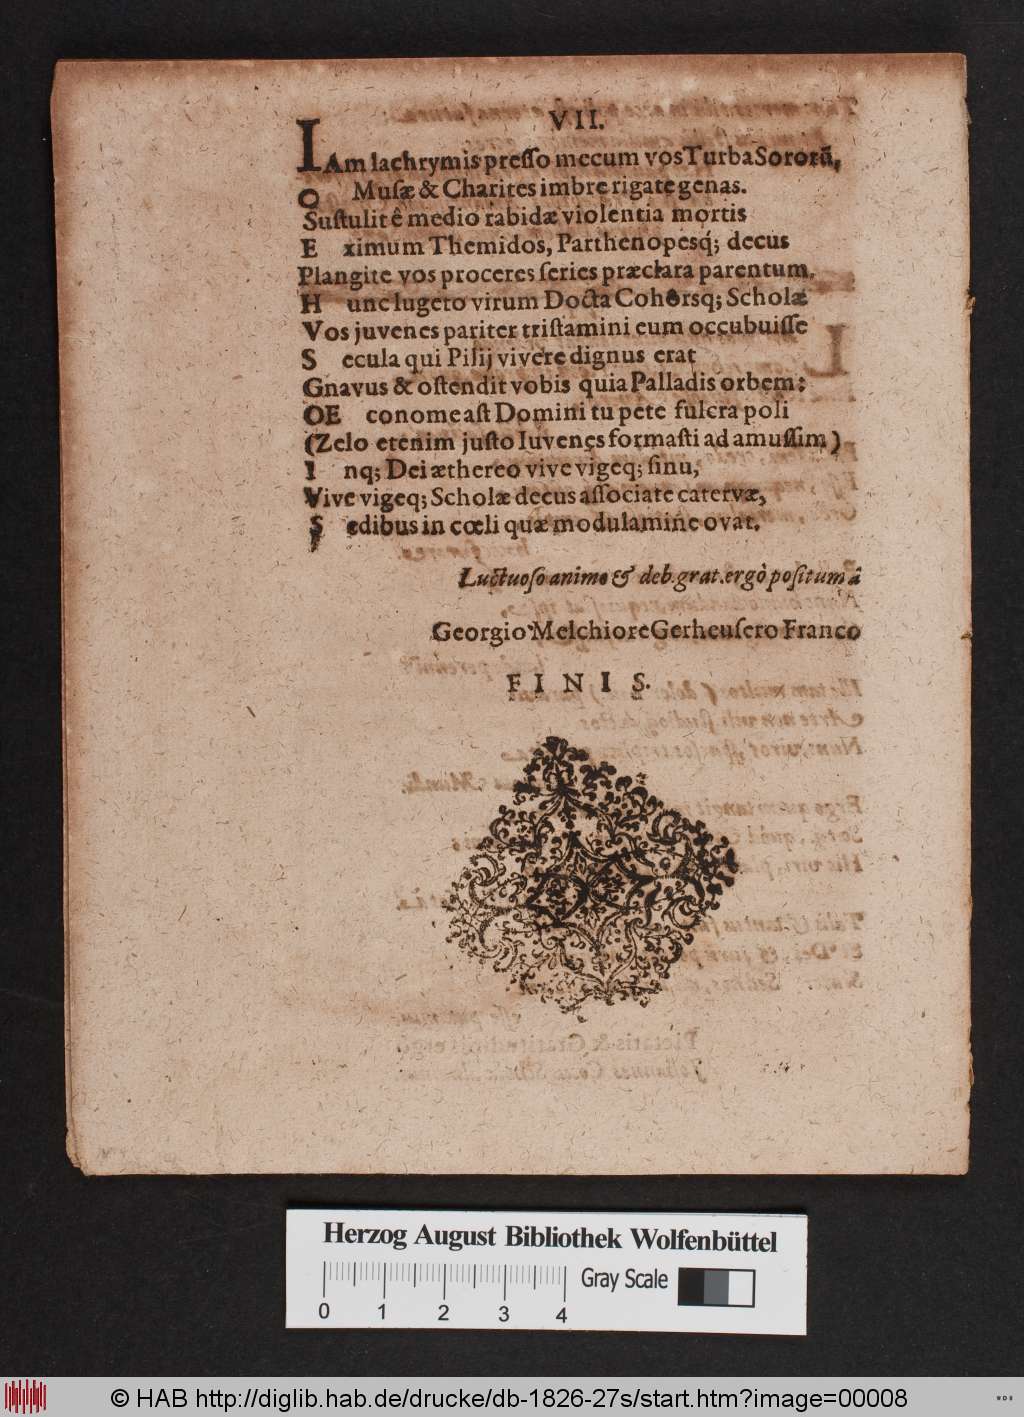 VII.
IAm lachrymis presso mecum vos Turba Sororū,
O Musæ & Charites imbre rigate genas.
Sustulit ê medio rabidæ violentia mortis
E ximum Themidos, Parthenopesq́; decus
Plangite vos proceres series præclara parentum,
H unc lugeto virum Docta Cohorsq; Scholæ
Vos juvenes pariter tristamini eum occubuisse
S ecula qui Pilij vivere dignus erat
Gnavus & ostendit vobis quia Palladis orbem:
OE conome ast Domini tu pete fulcra poli
(Zelo etenim justo Iuvenes formasti ad amussim)
I nq; Dei æthereo vive vigeq; sinu,
Vive vigeq; Scholæ decus associate catervæ,
S edibus in cœli quæ modulamine ovat.
Luctuoso animo & deb. grat. ergò positum â
Georgio Melchiore Gerheusero Franco
FINIS.
Herzog August Bibliothek Wolfenbüttel
0 1 2 3 4 Gray Scale
© HAB http://diglib.hab.de/drucke/db-1826-27s/start.htm?image=00008